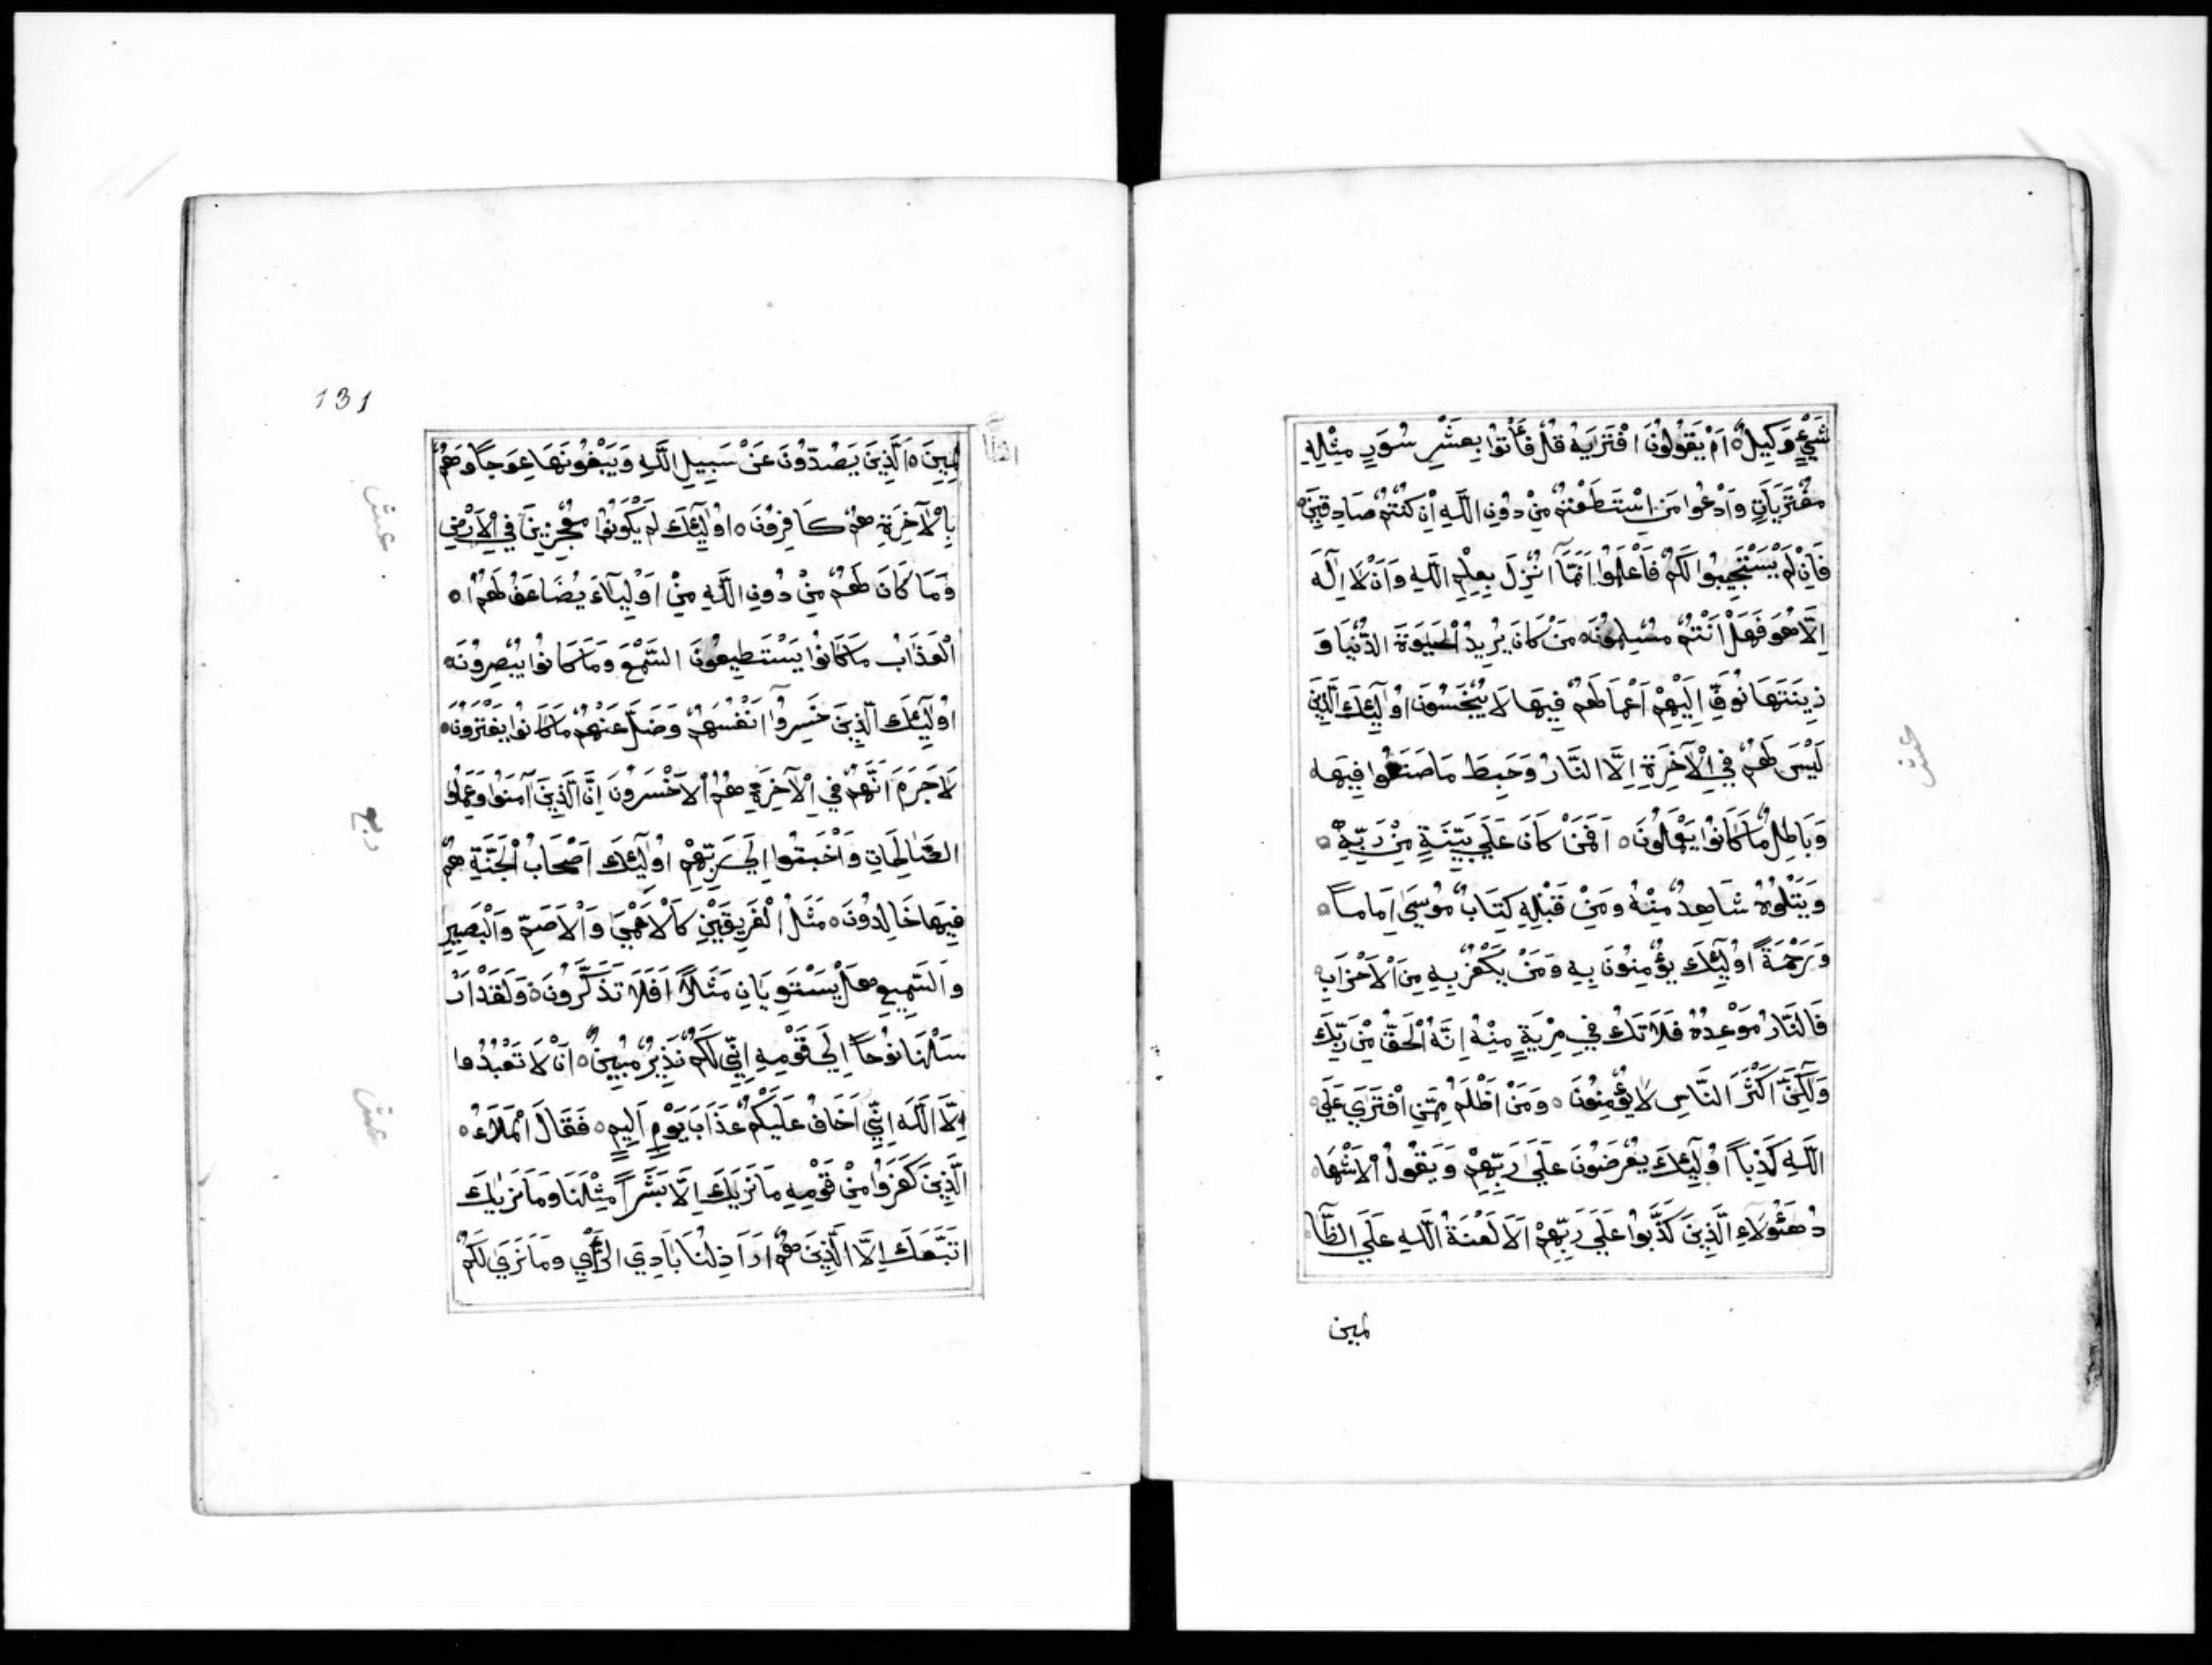 شَيْءٍ وَكِيلٌ ه اَمْ يَقُولُونَ افْتَرَيَهُ قُلْ فَأْتُوا بِعَشْرِ سُوَرٍ مِثْلِهِ
مُفْتَرَيَاتٍ وَادْعُوا مَنِ اسْتَطَعْتُمْ مِنْ دُونِ اللَّهِ اِنْ كُنْتُمْ صَادِقِينَ ه
فَاِنْ لَمْ يَسْتَجِيبُوا لَكُمْ فَاعْلَمُوا اَنَّمَآ اُنْزِلَ بِعِلْمِ اللَّهِ وَاَنْ لَا اِلَهَ
اِلَّا هُوَ فَهَلْ اَنْتُمْ مُسْلِمُونَ ه مَنْ كَانَ يُرِيدُ الْحَيَوةَ الدُّنْيَا وَ
زِينَتَهَا نُوَفِّ اِلَيْهِمْ اَعْمَالَهُمْ فِيهَا لَا يُبْخَسُونَ اُولَٓئِكَ الَّذِينَ
لَيْسَ لَهُمْ فِي الْآخِرَةِ اِلَّا النَّارُ وَحَبِطَ مَا صَنَعُوا فِيهَا
وَبَاطِلٌ مَا كَانُوا يَعْمَلُونَ ه اَفَمَنْ كَانَ عَلَى بَيِّنَةٍ مِنْ رَبِّهِ ه
وَيَتْلُوهُ شَاهِدٌ مِنْهُ وَمِنْ قَبْلِهِ كِتَابُ مُوسَى اِمَاماً ه
وَرَحْمَةً اُولَٓئِكَ يُؤْمِنُونَ بِهِ وَمَنْ يَكْفُرْ بِهِ مِنَ الْاَحْزَابِ
فَالنَّارُ مَوْعِدُهُ فَلَا تَكُ فِي مِرْيَةٍ مِنْهُ اِنَّهُ الْحَقُّ مِنْ رَبِّكَ
وَلَكِنَّ اَكْثَرَ النَّاسِ لَا يُؤْمِنُونَ ه وَمَنْ اَظْلَمُ مِمَّنِ افْتَرَى عَلَى
اللَّهِ كَذِباً اُولَٓئِكَ يُعْرَضُونَ عَلَى رَبِّهِمْ وَيَقُولُ الْاَشْهَا
دُ هَؤُلَاءِ الَّذِينَ كَذَّبُوا عَلَى رَبِّهِمْ اَلَا لَعْنَةُ اللَّهِ عَلَى الظَّا
لمين
عشر
131
لِمِينَ ه اَلَّذِينَ يَصُدُّونَ عَنْ سَبِيلِ اللَّهِ وَيَبْغُونَهَا عِوَجاً وَهُمْ
بِالْآخِرَةِ هُمْ كَافِرُونَ ه اُولَٓئِكَ لَمْ يَكُونُوا مُعْجِزِينَ فِي الْاَرْضِ
وَمَا كَانَ لَهُمْ مِنْ دُونِ اللَّهِ مِنْ اَوْلِيَآءَ يُضَاعَفُ لَهُمُ ه
الْعَذَابُ مَا كَانُوا يَسْتَطِيعُونَ السَّمْعَ وَمَا كَانُوا يُبْصِرُونَ ه
اُولَٓئِكَ الَّذِينَ خَسِرُوٓا اَنْفُسَهُمْ وَضَلَّ عَنْهُمْ مَا كَانُوا يَفْتَرُونَ ه
لَا جَرَمَ اَنَّهُمْ فِي الْآخِرَةِ هُمُ الْاَخْسَرُونَ اِنَّ الَّذِينَ آمَنُوا وَعَمِلُوا
الصَّالِحَاتِ وَاَخْبَتُوا اِلَى رَبِّهِمْ اُولَٓئِكَ اَصْحَابُ الْجَنَّةِ هُمْ
فِيهَا خَالِدُونَ ه مَثَلُ الْفَرِيقَيْنِ كَالْاَعْمَى وَالْاَصَمِّ وَالْبَصِيرِ
وَالسَّمِيعِ هَلْ يَسْتَوِيَانِ مَثَلًا اَفَلَا تَذَكَّرُونَ ه وَلَقَدْ اَرْ
سَلْنَا نُوحاً اِلَى قَوْمِهِ اِنِّي لَكُمْ نَذِيرٌ مُبِينٌ ه اَنْ لَا تَعْبُدُوا
اِلَّا اللَّهَ اِنِّي اَخَافُ عَلَيْكُمْ عَذَابَ يَوْمٍ اَلِيمٍ ه فَقَالَ الْمَلَاءُ ه
الَّذِينَ كَفَرُوا مِنْ قَوْمِهِ مَا نَرَيكَ اِلَّا بَشَراً مِثْلَنَا وَمَا نَرَيكَ
اتَّبَعَكَ اِلَّا الَّذِينَ هُمْ اَرَاذِلُنَا بَادِيَ الرَّأْيِ وَمَا نَرَى لَكُمْ
عشر
ربع
عشر